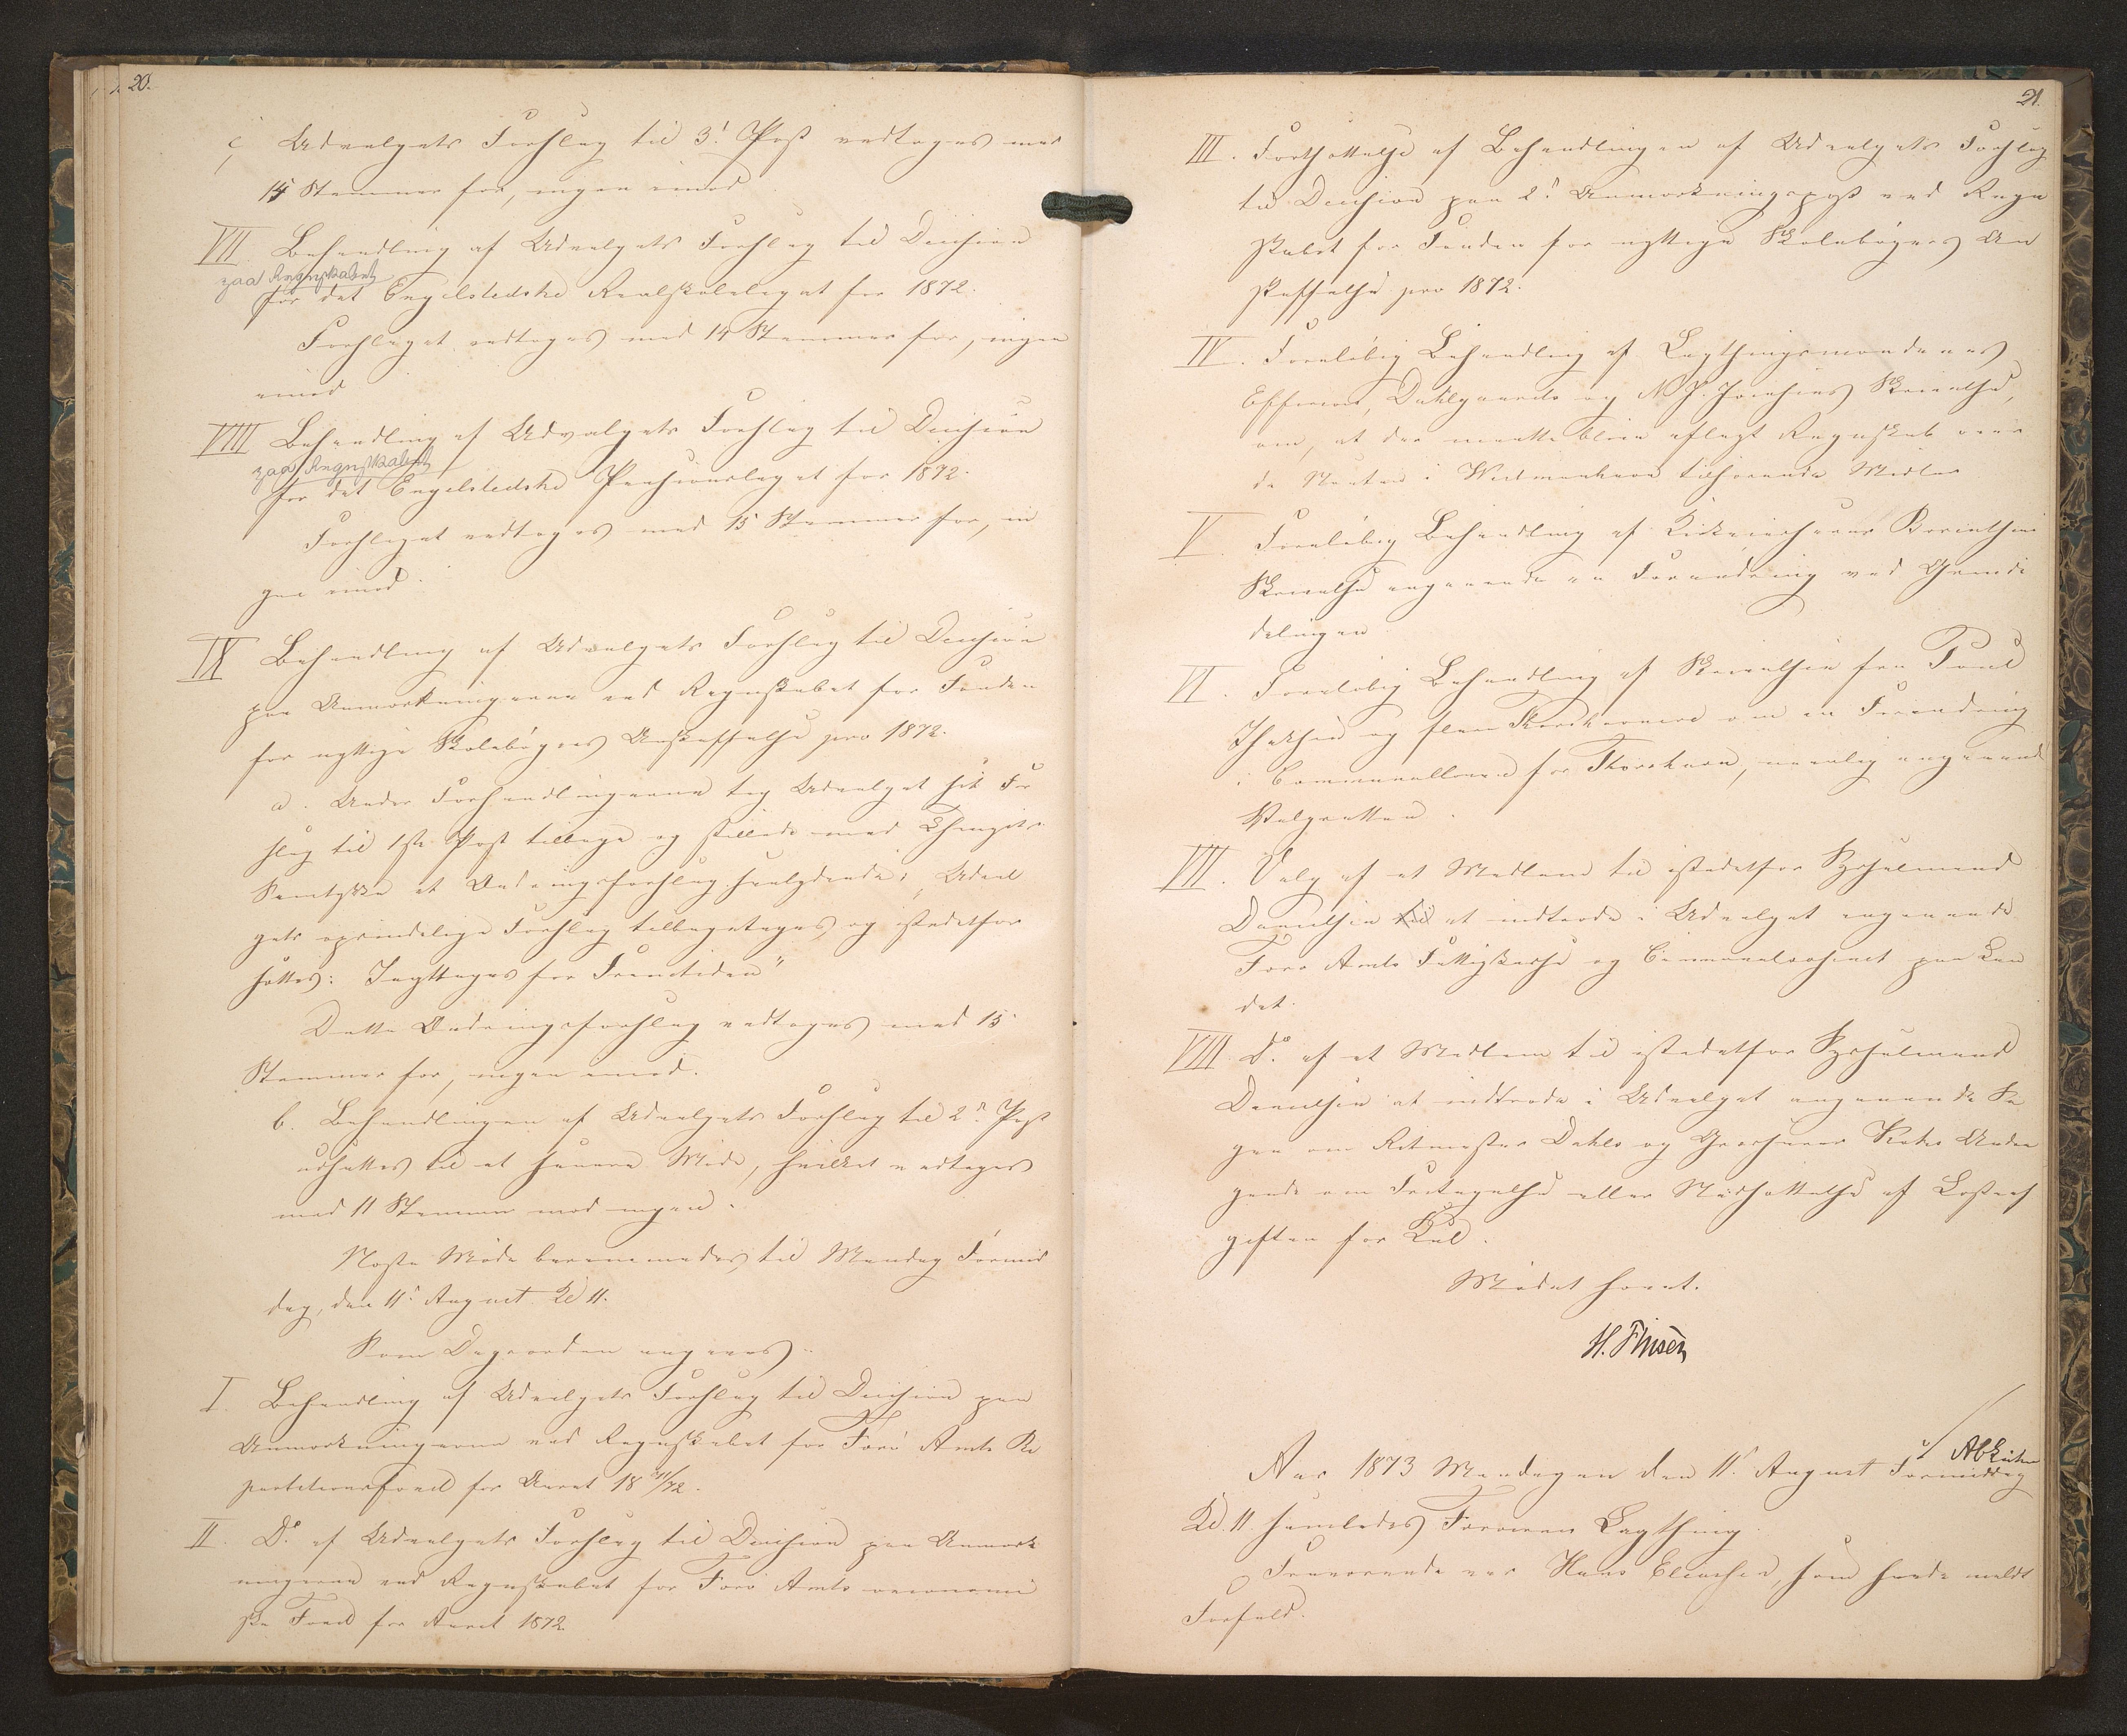 20.
c, Udvalgets Forslag til 3die Post vedtoges med
15 Stemmer for, ingen imod
VII. Behandling af Udvalgets Forslag til Decision
paa Regnskabet
for det Engelstedske Realskolelegat for 1872.
Forslaget vedtoges med 14 Stemmer for, ingen
imod
VIII Behandling af Udvalgets Forslag til Decision
paa Regnskabet
for det Engelstedske Præmielegat for 1872.
Forslaget vedtoges med 15 Stemmer for, in
gen imod
IX Behandling af Udvalgets Forslag til Decision
paa Anmærkningerne ved Regnskabet for Fonden
for nyttige Skolebøgers Anskaffelse pro 1872.
a. Under Forhandlingerne tog Udvalget sit For
slag til 1ste Post tilbage og stillede med Thingets
Samtykke et Ændringsforslag saalydende: „Udval
gets oprindelige Forslag tilbagetages, og istedetfor
sættes: Iagttages for Fremtiden"
Dette Ændringsforslag vedtoges med 15
Stemmer for, ingen imod.
b. Behandlingen af Udvalgets Forslag til 2den Post
udsattes til et senere Møde, hvilket vedtoges
med 11 Stemmer mod ingen.
Næste Møde berammedes til Mandag Formid
dag, den 11te August Kl 11.
Som Dagsorden angaves:
I. Behandling af Udvalgets Forslag til Decision paa
Anmærkningerne ved Regnskabet for Færø Amts Re
partitionsfond for Aaret 18 71/72.
II. Do. af Udvalgets Forslag til Decision paa Anmærk
ningerne ved Regnskabet for Færø Amts oeconomi
ske Fond for Aaret 1872.
21.
III. Fortsættelse af Behandlingen af Udvalgets Forslag
til Decision paa 2den Anmærkningspost ved Regn
skabet for Fonden for nyttige Skolebøgers An
skaffelse pro 1872.
IV. Foreløbig Behandling af Lagthingsmændenes
Effersøe, Dahlgaards og M. J. Jacobsens Skrivelse,
om, at der maatte blive aflagt Regnskab over
de Kirken i Vestmanhavn tilhørende Midler
V. Foreløbig Behandling af Skrivelse angaaende en Forandring ved Grinde
delingen.
VI. Foreløbig Behandling af Skrivelsen fra Poul
Isaksen og flere Thorshavnere om en Forandring
i Communalloven for Thorshavn, navnlig angaaende
Valgretten.
VII. Valg af et Medlem til istedetfor Sysselmand
Danielsen til at indtræde i Udvalget angaaende
Færø Amts Fattigkasse og Communalvæsenet paa Lan
det.
VIII. Do. af et Medlem til istedetfor Sysselmand
Danielsen at indtræde i Udvalget angaaende Sa
gen om Ritmester Dahls og Grosserer Andra
gende om Fritagelse eller Nedsættelse af Lasteaf
giften for Kul.
Mødet hævet.
H. Finsen
Aar 1873 Mandagen den 11te August Formiddag
Kl. 11 samledes Færøernes Lagthing.
Fraværende var Hans , som havde meldt
Forfald.